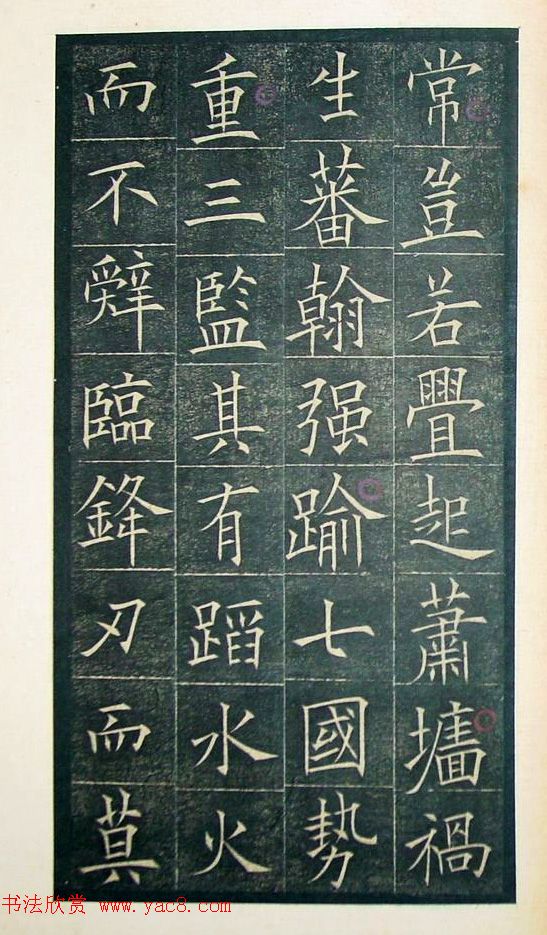 常豈若疊起蕭墻禍
生蕃翰强踰七國勢
重三監其有蹈水火
而不辤臨鋒刃而莫
书法欣赏 www.yac8.com